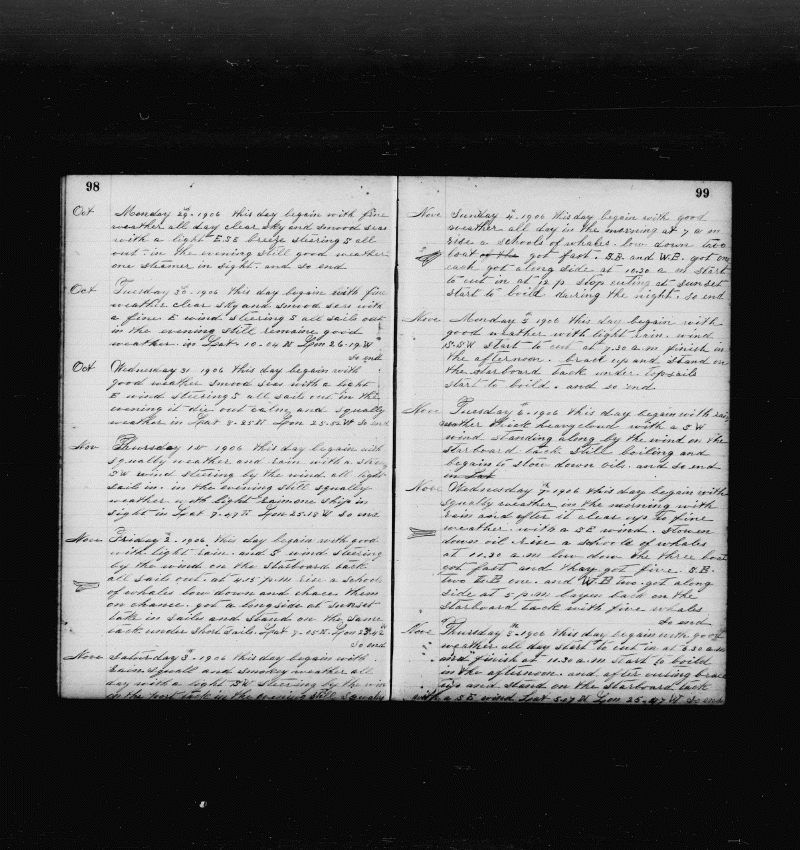 98
Oct Monday 29th 1906 this day began with fine
weather all day clear sky and smood seas
with a light E.S.E breeze steering S all
out. in the evening still good weather
one steamer in sight. and so end
Oct Tuesday 30th 1906 this day began with fine
weather clear sky and smood seas with
a fine E wind steering S all sails out
in the evening still remaine good
weather. in Lat 10-04 N Lon 26-19 W
So end
Oct Wednesday 31 1906 this day began with
good weather smood seas with a light
E wind steering S all sails out in the
evening it die out calm and squally
weather in Lat 8-25 N Lon 25-52 W So end
Nov Thursday 1st 1906 this day began with
squally weather and rain with a
SW wind steering by the wind all light
sails in. in the evening still squally
weather with light rain one ship in
sight in Lat 7-47 N Lon 25-18 W So end
Nove Friday 2. 1906 this day began with good
with light rain. and S wind steering
by the wind on the starboard tack
all sails out. at 4.15 P.M rise a schools
of whales low down and chace them
on chance. got a longside at sunset
take in sailes and stand on the same
tack under short sails. Lat 7-05 N Lon 25-42 W
So end
Nove Saturday 3. 1906 this day began with
rain squall and smoky weather all
day with a light SW steering by the win
on the port tack in the evening still squaly
99
Nove Sunday 4. 1906 this day began with good
weather all day in the morning at 7 a m
rise a schools of whales. low down two
boat got fast. S.B. and W.B. got one
each got along side at 10.30 a m start
to cut in at 12 p stop cuting at sunset
start to boild during the night. So end
Nove Monday 5 1906 this day began with
good weather with light rain. wind
S.S.W start to cut at 7.30 a.m finish in
the afternoon. brace up and stand on
the starboard tack under topsails
start to boild. and so end.
Nove Tuesday 6. 1906 this day began with rainy
weather thick heavy cloud with a SW
wind standing along by the wind on the
starboard tack still boiling and
began to stow down oils. and so end
in Lat
Nove Wednesday 7. 1906 this day began with
squally weather in the morning with
rain and after it clear up to fine
weather. with a SE wind. stowen
down oil. rise a schools of whales
at 11.30 a.m low dow the three boat
got fast and thay got five. S.B.
two L.B one. and W.B two. got along
side at 5 p.m layen back on the
starboard tack with five whales
So end
Nove Thursday 8th 1906 this day began with good
weather all day start to cut in at 6.30 a m
and finish at 11.30 a.m start to boild
in the afternoon. and after cuting brace
up and stand on the starboard tack
with a SE wind Lat 5-07 N Lon 25-47 W So end